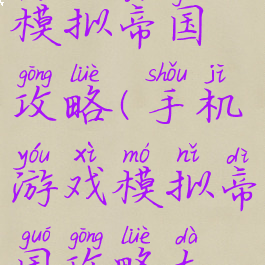 模拟帝国
gōng lüè shǒu jī
攻略(手机
yóu xì mó nǐ dì
游戏模拟帝
guó gōng lüè dà
国攻略大